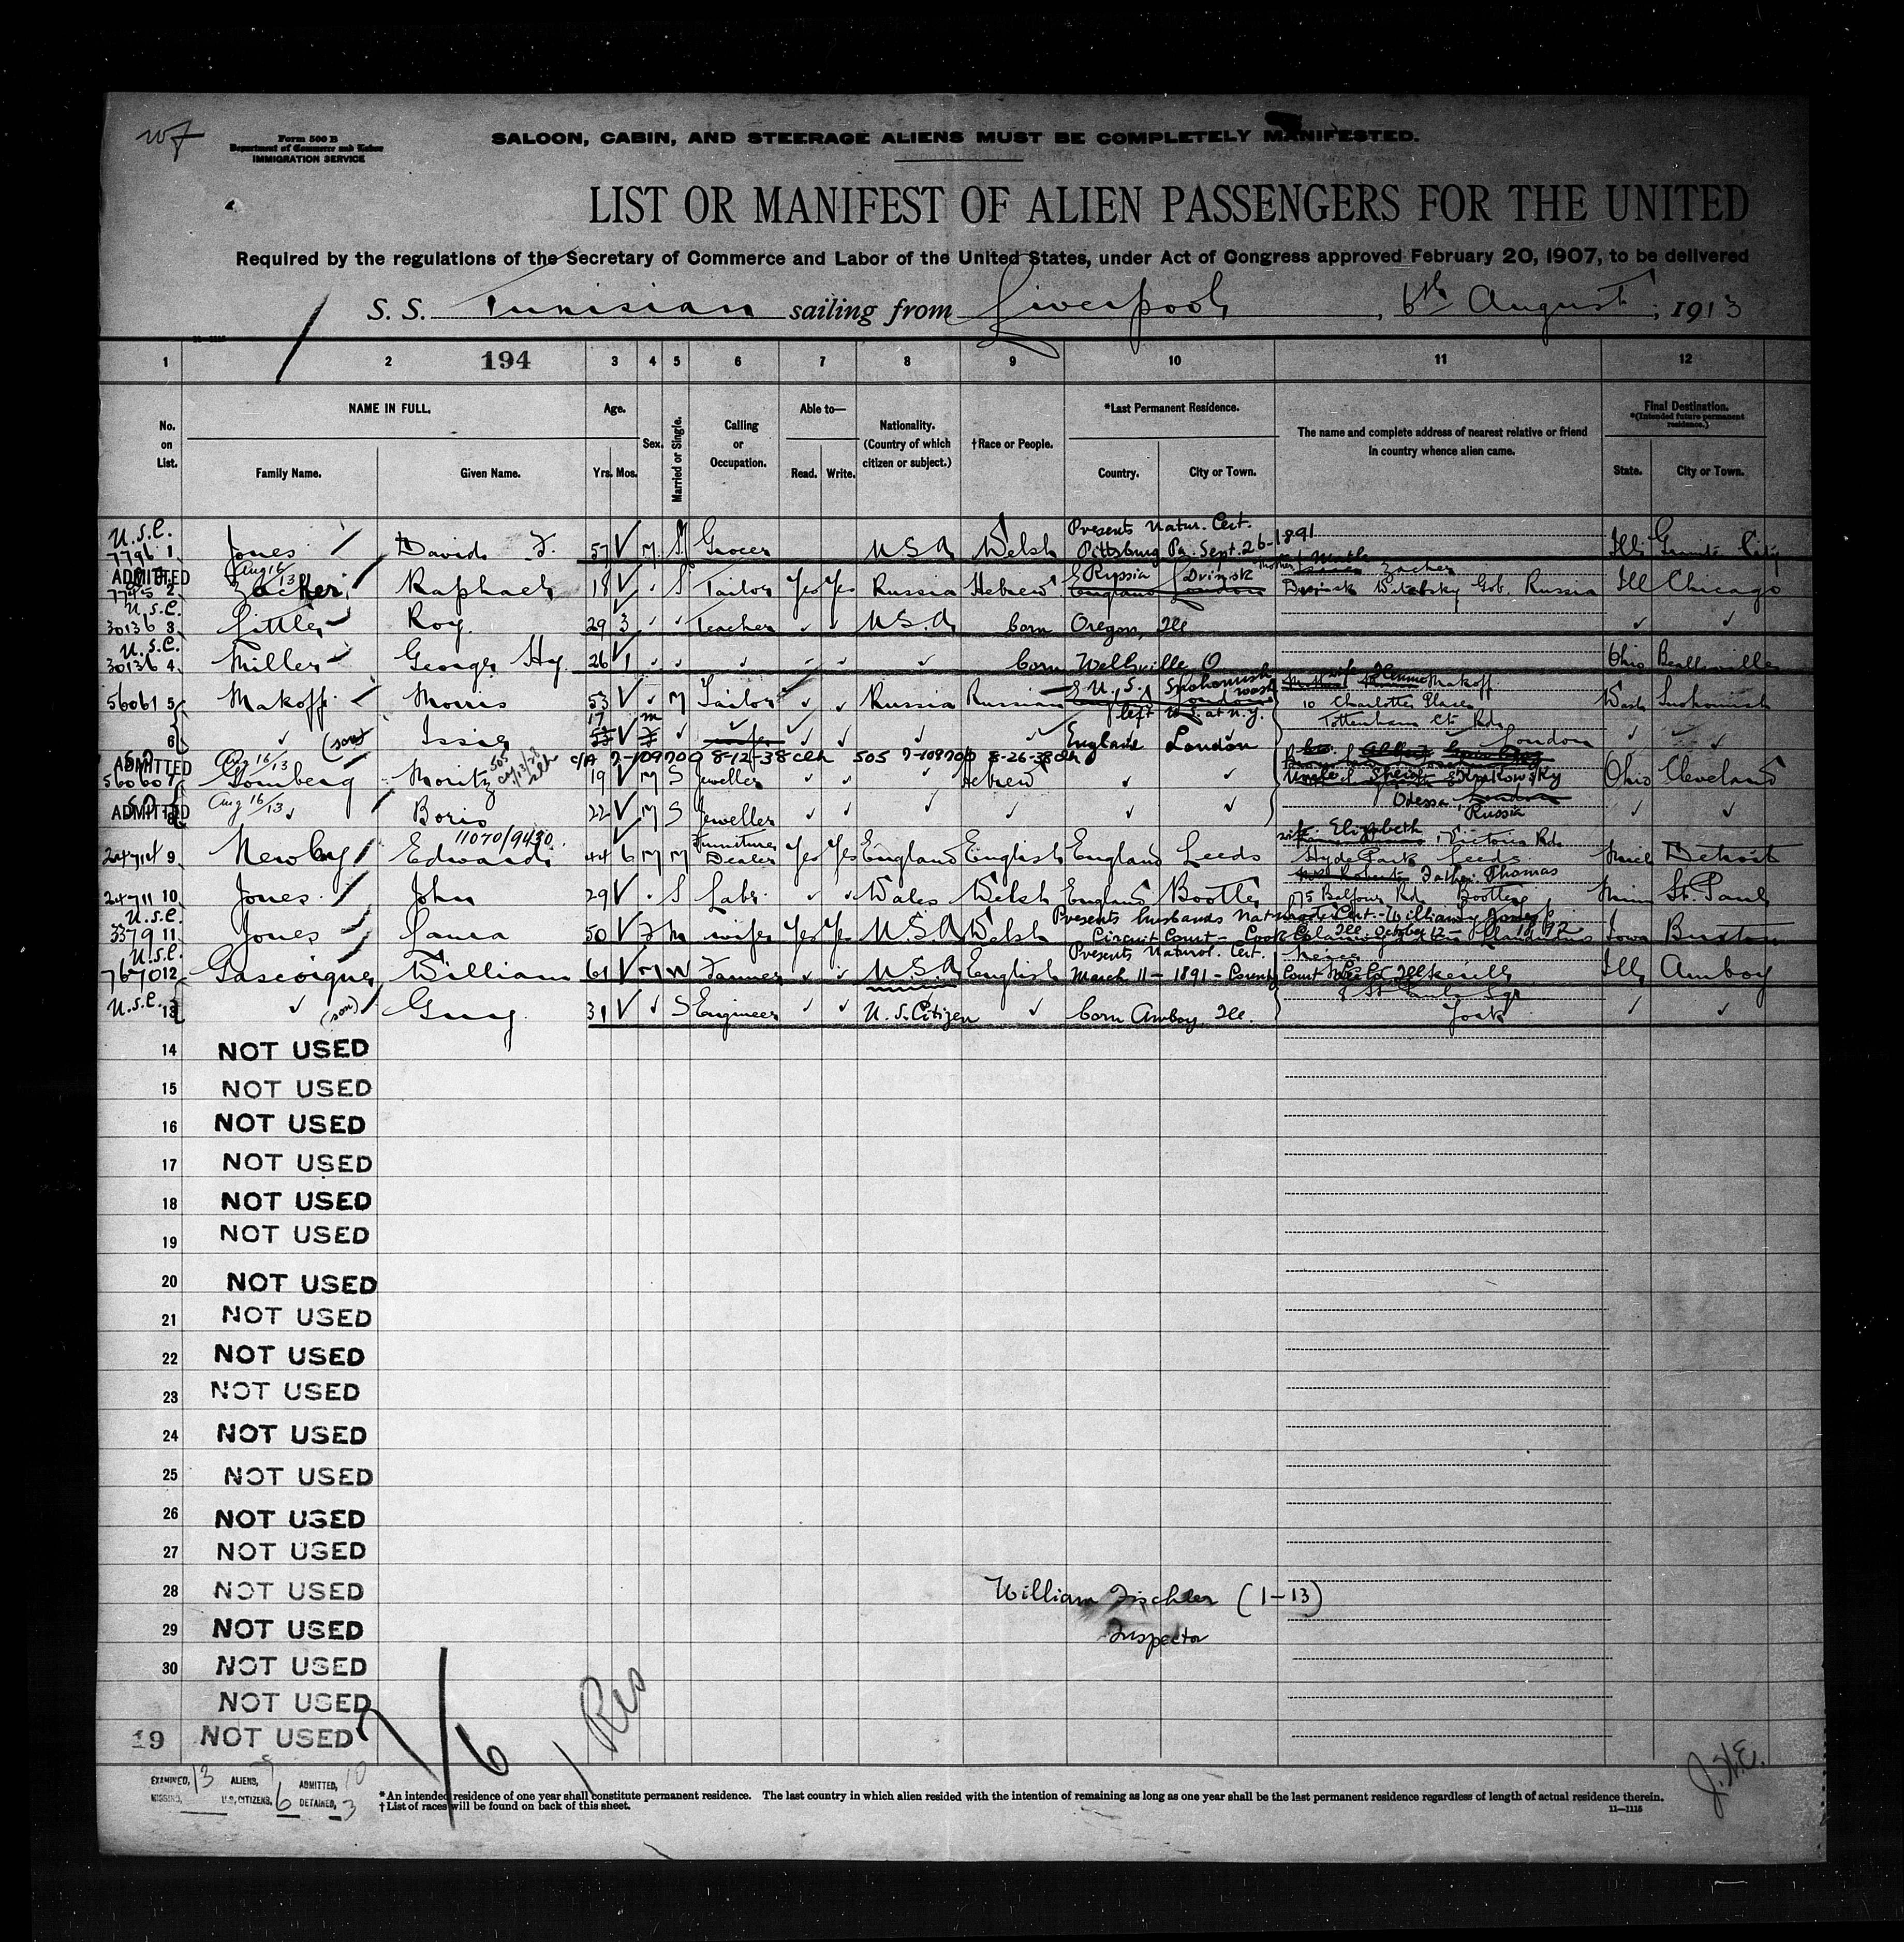 w7
Form 500 B
Department of Commerce and Labor
IMMIGRATION SERVICE
SALOON, CABIN, AND STEERAGE ALIENS MUST BE COMPLETELY MANIFESTED.
LIST OR MANIFEST OF ALIEN PASSENGERS FOR THE UNITED
Required by the regulations of the Secretary of Commerce and Labor of the United States, under Act of Congress approved February 20, 1907, to be delivered
S. S. Tunisian sailing from Liverpool, 6th August, 1913
1 2 194 3 4 5 6 7 8 9 10 11 12
No. on List. NAME IN FULL. Family Name. Given Name. Age. Yrs. Mos. Sex. Married or Single. Calling or Occupation. Able to— Read. Write. Nationality. (Country of which citizen or subject.) †Race or People. *Last Permanent Residence. Country. City or Town. The name and complete address of nearest relative or friend in country whence alien came. Final Destination. *(Intended future permanent residence.) State. City or Town.
U.S.C. Presents Natur. Cert.
7796 1 Jones David F. 57 M S Grocer U.S.A. Welsh Pittsburg Pa. Sept. 26-1891 Ills Granite City
ADMITTED Aug 16/13 Russia Dvinsk Mother Zacher
7795 2 Zacker Raphael 18 ✓ S Tailor Yes Yes Russia Hebrew England London Dvinsk Witebsky Gob. Russia Ill Chicago
U.S.C.
30136 3 Little Roy 29 3 ✓ ✓ Teacher ✓ ✓ U.S.A. born Oregon, Ill ✓ ✓
U.S.C.
30136 4 Miller George Hy. 26 1 ✓ ✓ ✓ ✓ ✓ ✓ born Wellsville O Ohio Beallsville
56061 5 Makoff Morris 53 ✓ M Tailor ✓ ✓ Russia Russian U.S. Snohomish Wash left U.S. at N.Y. Makoff 10 Charlotte Place Wash Snohomish
6 ✓ (son) Issie 17 m ✓ wife ✓ ✓ ✓ ✓ England London Tottenham Ct. Rd. London ✓ ✓
ADMITTED Aug 16/13 c/A 7-109700 8-12-38 clh 505 7-109700 8-26-38
56060 7 Gomberg Moritz 19 M S Jeweller ✓ ✓ ✓ Hebrew ✓ ✓ Uncle Krakowsky Ohio Cleveland
ADMITTED Aug 16/13
8 ✓ Boris 22 M S Jeweller ✓ ✓ ✓ ✓ ✓ ✓ Odessa London Russia ✓ ✓
11070/9430
24714 9 Newby Edward 44 6 M M Furniture Dealer Yes Yes England English England Leeds wife Elizabeth Victoria Rd. Hyde Park Leeds Mich Detroit
24711 10 Jones John 29 ✓ S Labr. ✓ ✓ Wales Welsh England Bootle Father Thomas 75 Balfour Rd. Bootle Minn St. Paul
U.S.C. Presents husbands Nat. Cert. - William J. Jones
3379 11 Jones Laura 50 F M wife Yes Yes U.S.A. Welsh Circuit Court - Cook Co. Ill October 12 - 1892 Iowa Buxton
U.S.C. Presents Natural. Cert.
7670 12 Gascoigne William 61 M W Farmer ✓ ✓ U.S.A. English March 11 - 1891 - County Court Lee Co. Ill Ills Amboy
U.S.C. 13 ✓ (son) Guy 31 ✓ S Engineer ✓ ✓ U.S. Citizen ✓ born Amboy, Ill. 8 St. Pauls Sqr York ✓ ✓
14 NOT USED
15 NOT USED
16 NOT USED
17 NOT USED
18 NOT USED
19 NOT USED
20 NOT USED
21 NOT USED
22 NOT USED
23 NOT USED
24 NOT USED
25 NOT USED
26 NOT USED
27 NOT USED
28 NOT USED William Fischler (1-13)
29 NOT USED Inspector
30 NOT USED
NOT USED
19 NOT USED
EXAMINED, 13 ALIENS, 7 ADMITTED, 10
MISSING, U.S. CITIZENS, 6 DETAINED, 3
*An intended residence of one year shall constitute permanent residence. The last country in which alien resided with the intention of remaining as long as one year shall be the last permanent residence regardless of length of actual residence therein.
†List of races will be found on back of this sheet.
11—1115